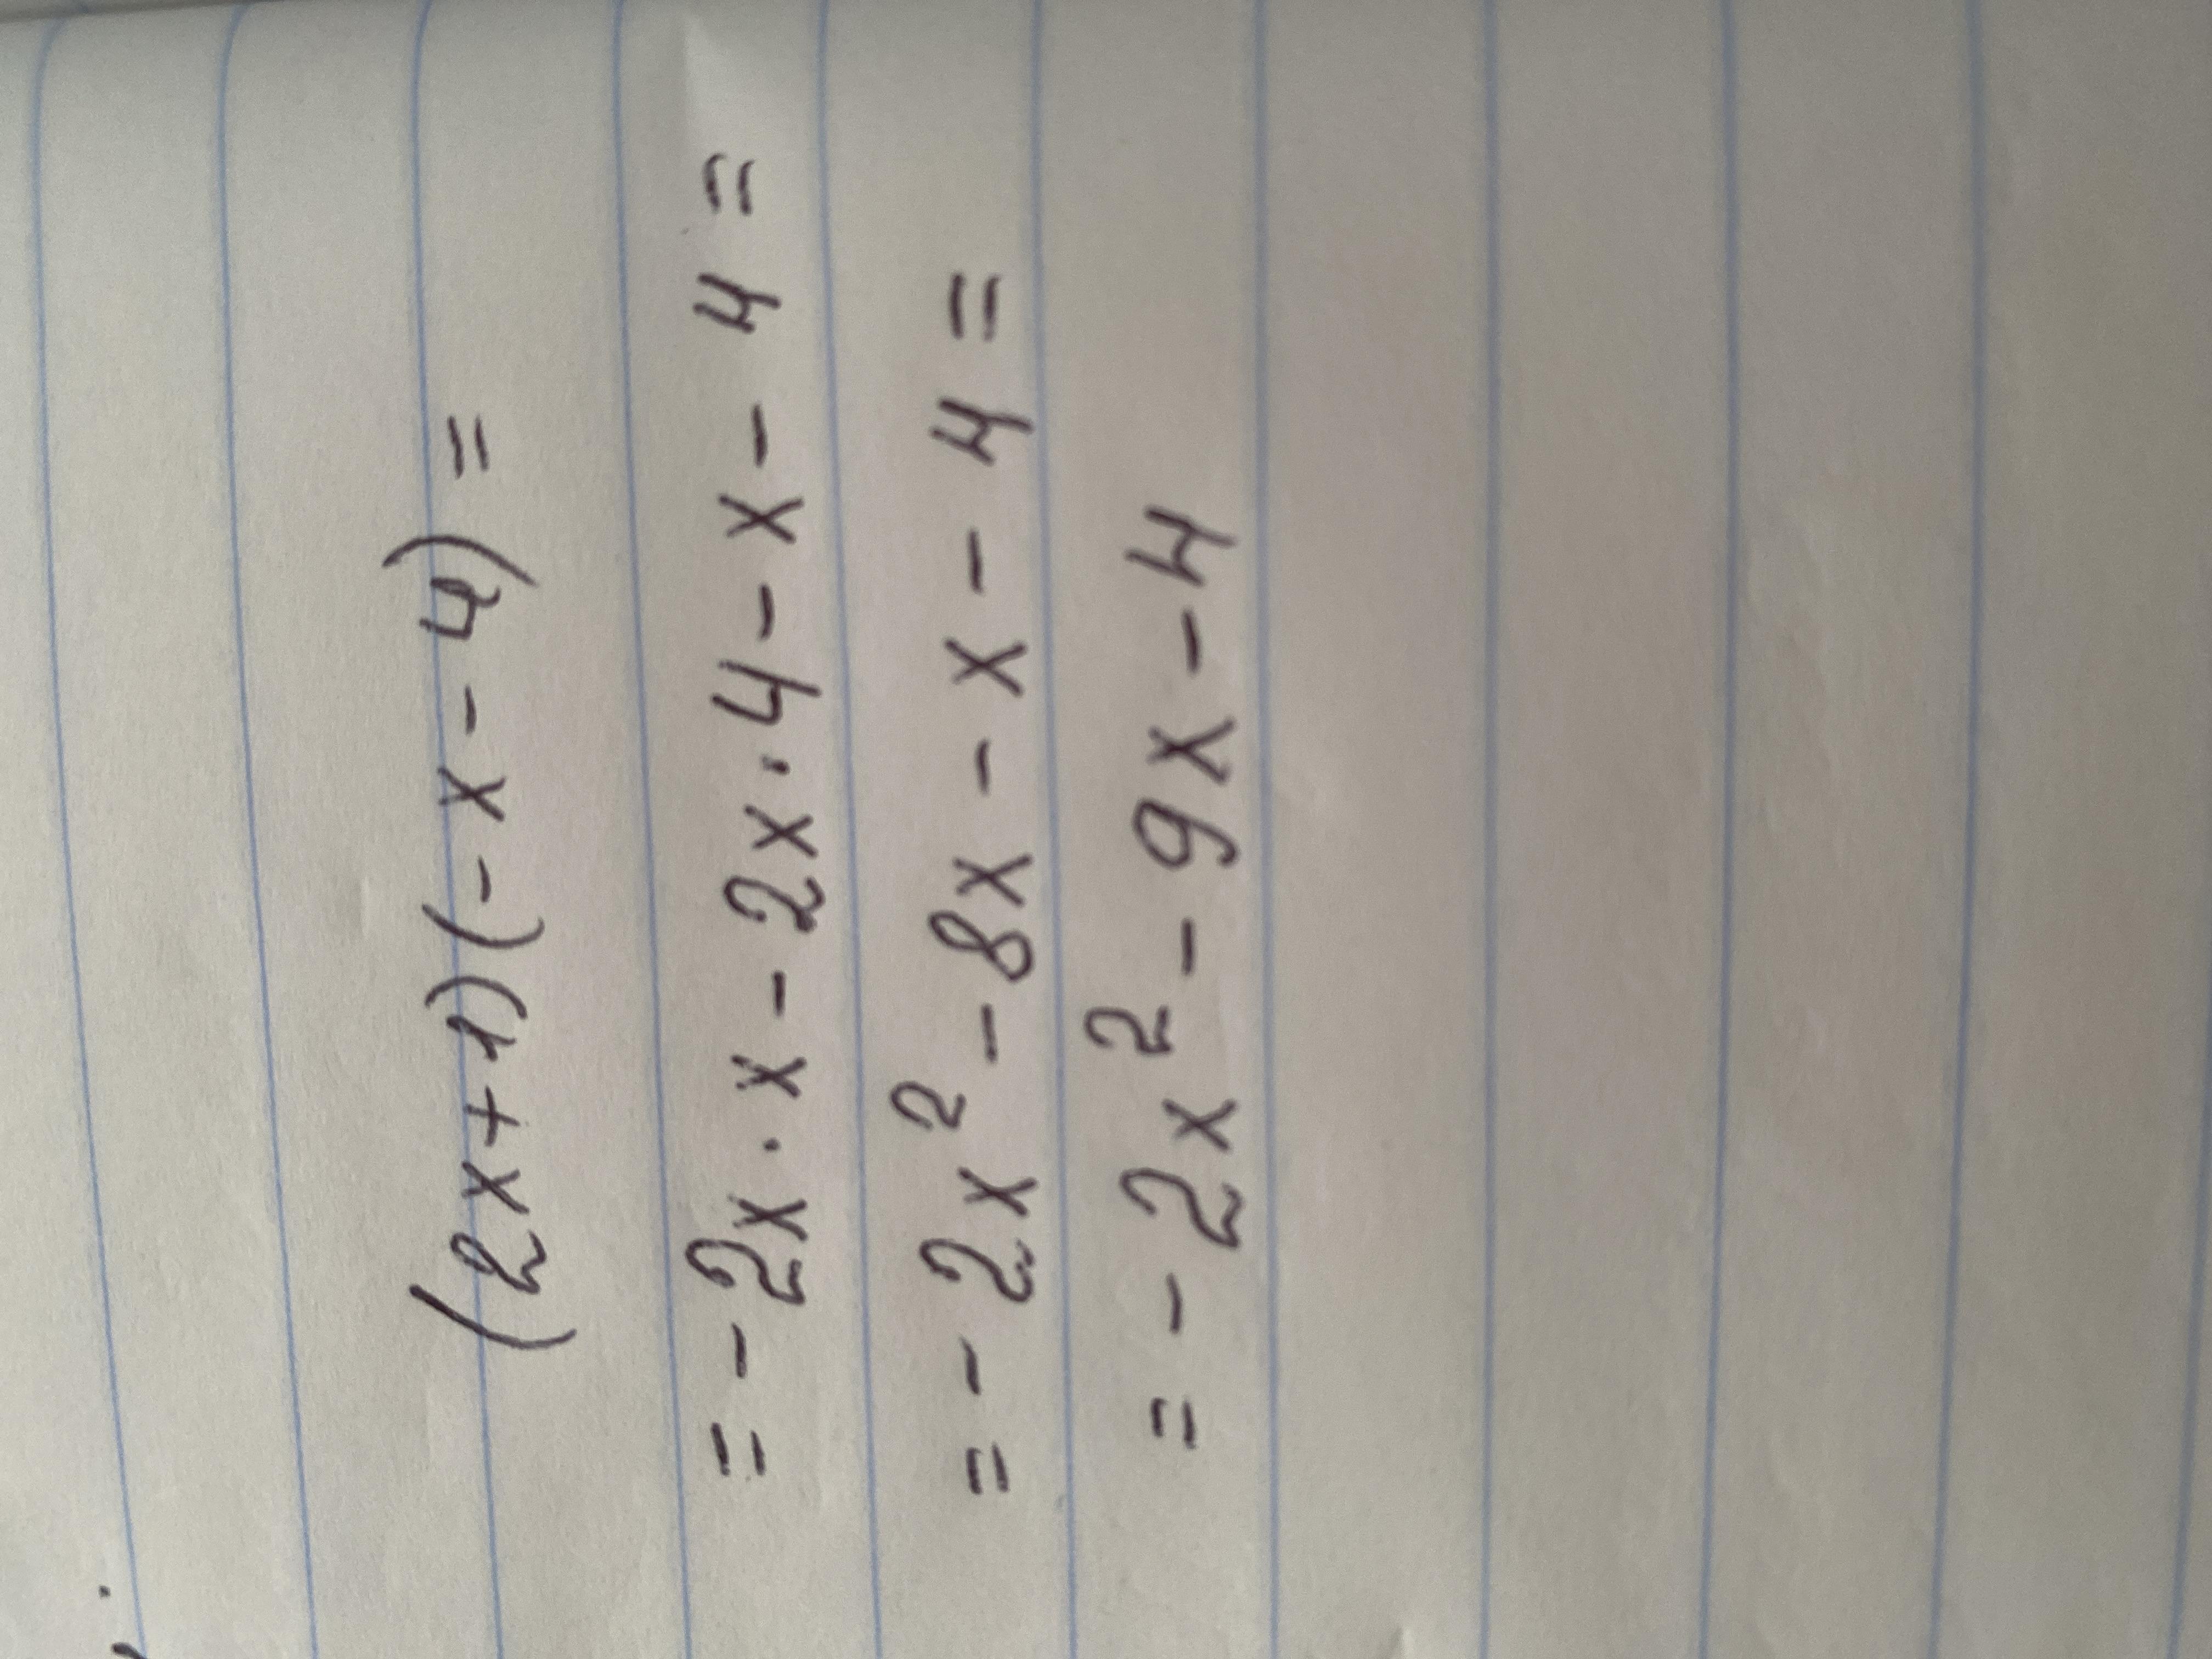 (2x+1)(-x-4)=
=-2x·x-2x·4-x-4=
=-2x²-8x-x-4=
=-2x²-9x-4